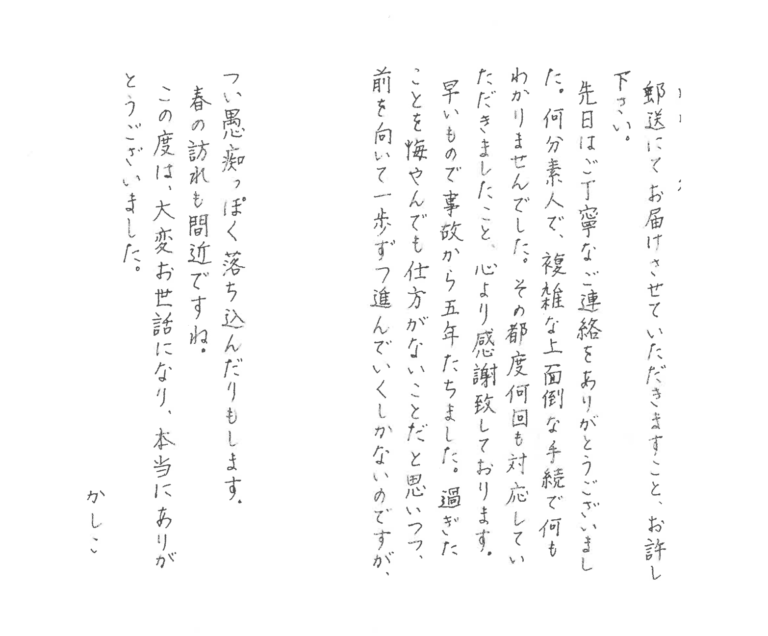 郵送にてお届けさせていただきますこと、お許し
下さい。
先日はご丁寧なご連絡をありがとうございまし
た。何分素人で、複雑な上面倒な手続で何も
わかりませんでした。その都度何回も対応してい
ただきましたこと、心より感謝致しております。
早いもので事故から五年たちました。過ぎた
ことを悔やんでも仕方がないことだと思いつつ、
前を向いて一歩ずつ進んでいくしかないのですが、
つい愚痴っぽく落ち込んだりもします。
春の訪れも間近ですね。
この度は、大変お世話になり、本当にありが
とうございました。
かしこ